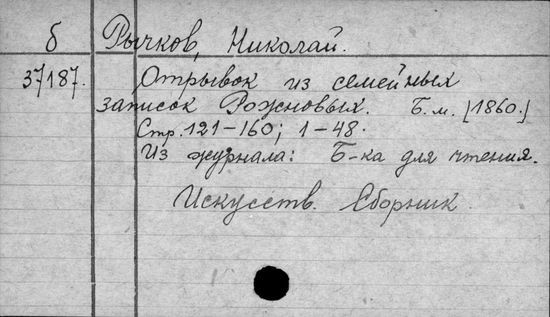 б Рычков, Николай.
37187. Отрывок из семейных
записок Рожновых. Б. м. [1860.]
Стр. 121-160; 1-48.
Из журнала: Б-ка для чтения.
Искусств. Сборник.